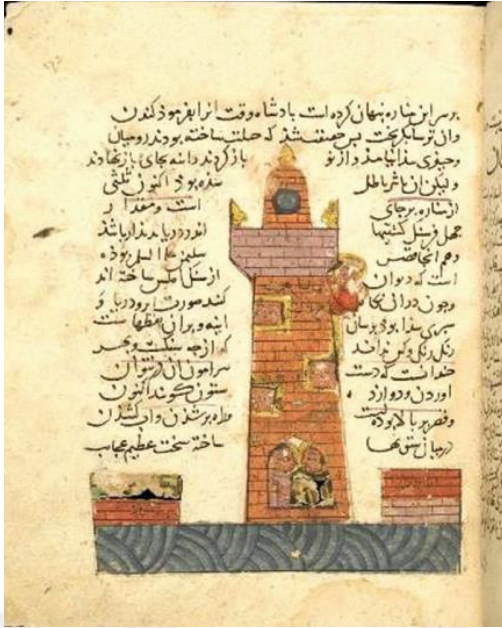 برسر این مناره پنهان کرده است بادشاه وقت انرا بفرمود کندن
وان ترسا بکریخت بس حقیقت شد که حیلت ساخته بودند رومیان
وجیزی بیدا نیامد و از نو باز کردند انه بجای باز نهادند
ولیکن ان تاثیر باطل شده بود اکنون ثلثی
از مناره برجای است و مقدار
جهل فرسنک کشتیها اندر دریا بدیدار باشد
وهم انجا قصر سلیمن علیه السلم بوده
است که دیوان از سنک املس ساخته اند
وجون دران نکاه کنند صورت ابر و دریا و
سبزی بیدا بود برسان اینه و بران نقطها ست
رنک رنک و کس نداند که از جه سنکست و
جنانست که دست بیرامون ان در نتوان
اوردن و ستون کویند اکنون
وقصر بر بالا بوده
درمیان ستونها ساخته سخت عظیم عجایب